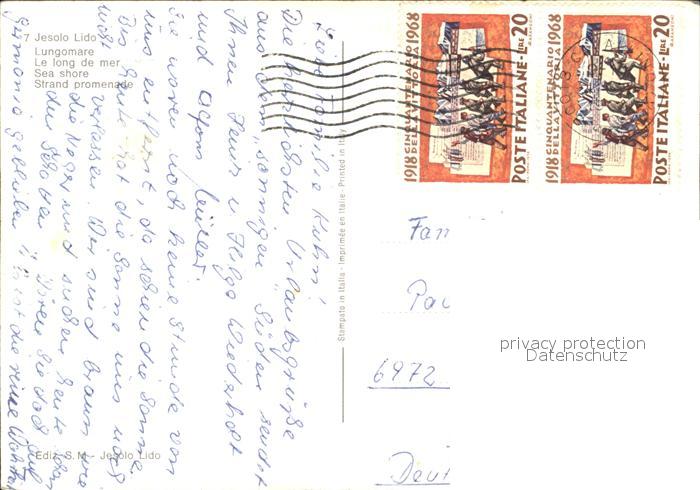 7 Jesolo Lido
Lungomare
Le long de mer
Sea shore
Strand promenade
Liebe Familie Kuhn!
Die herzlichsten Urlaubsgrüße
aus dem "sonnigen" Süden sendet
Ihnen Heinz u. Helga Wiederholt
und
Sie waren noch keine Stunde von
uns entfernt, da schien die Sonne.
Bis heute hat die Sonne uns noch
nicht verlassen. Wir sind braun wie
die Neger und suchen heute schon
den Schatten.
geblieben
Ediz. S.M. - Jesolo Lido
Stampato in Italia - Imprimée en Italie - Printed in Italy
1918 CINQUANTENARIO 1968
DELLA VITTORIA
POSTE ITALIANE - LIRE 20
1918 CINQUANTENARIO 1968
DELLA VITTORIA
POSTE ITALIANE - LIRE 20
Fam
6972
Deut
privacy protection
Datenschutz